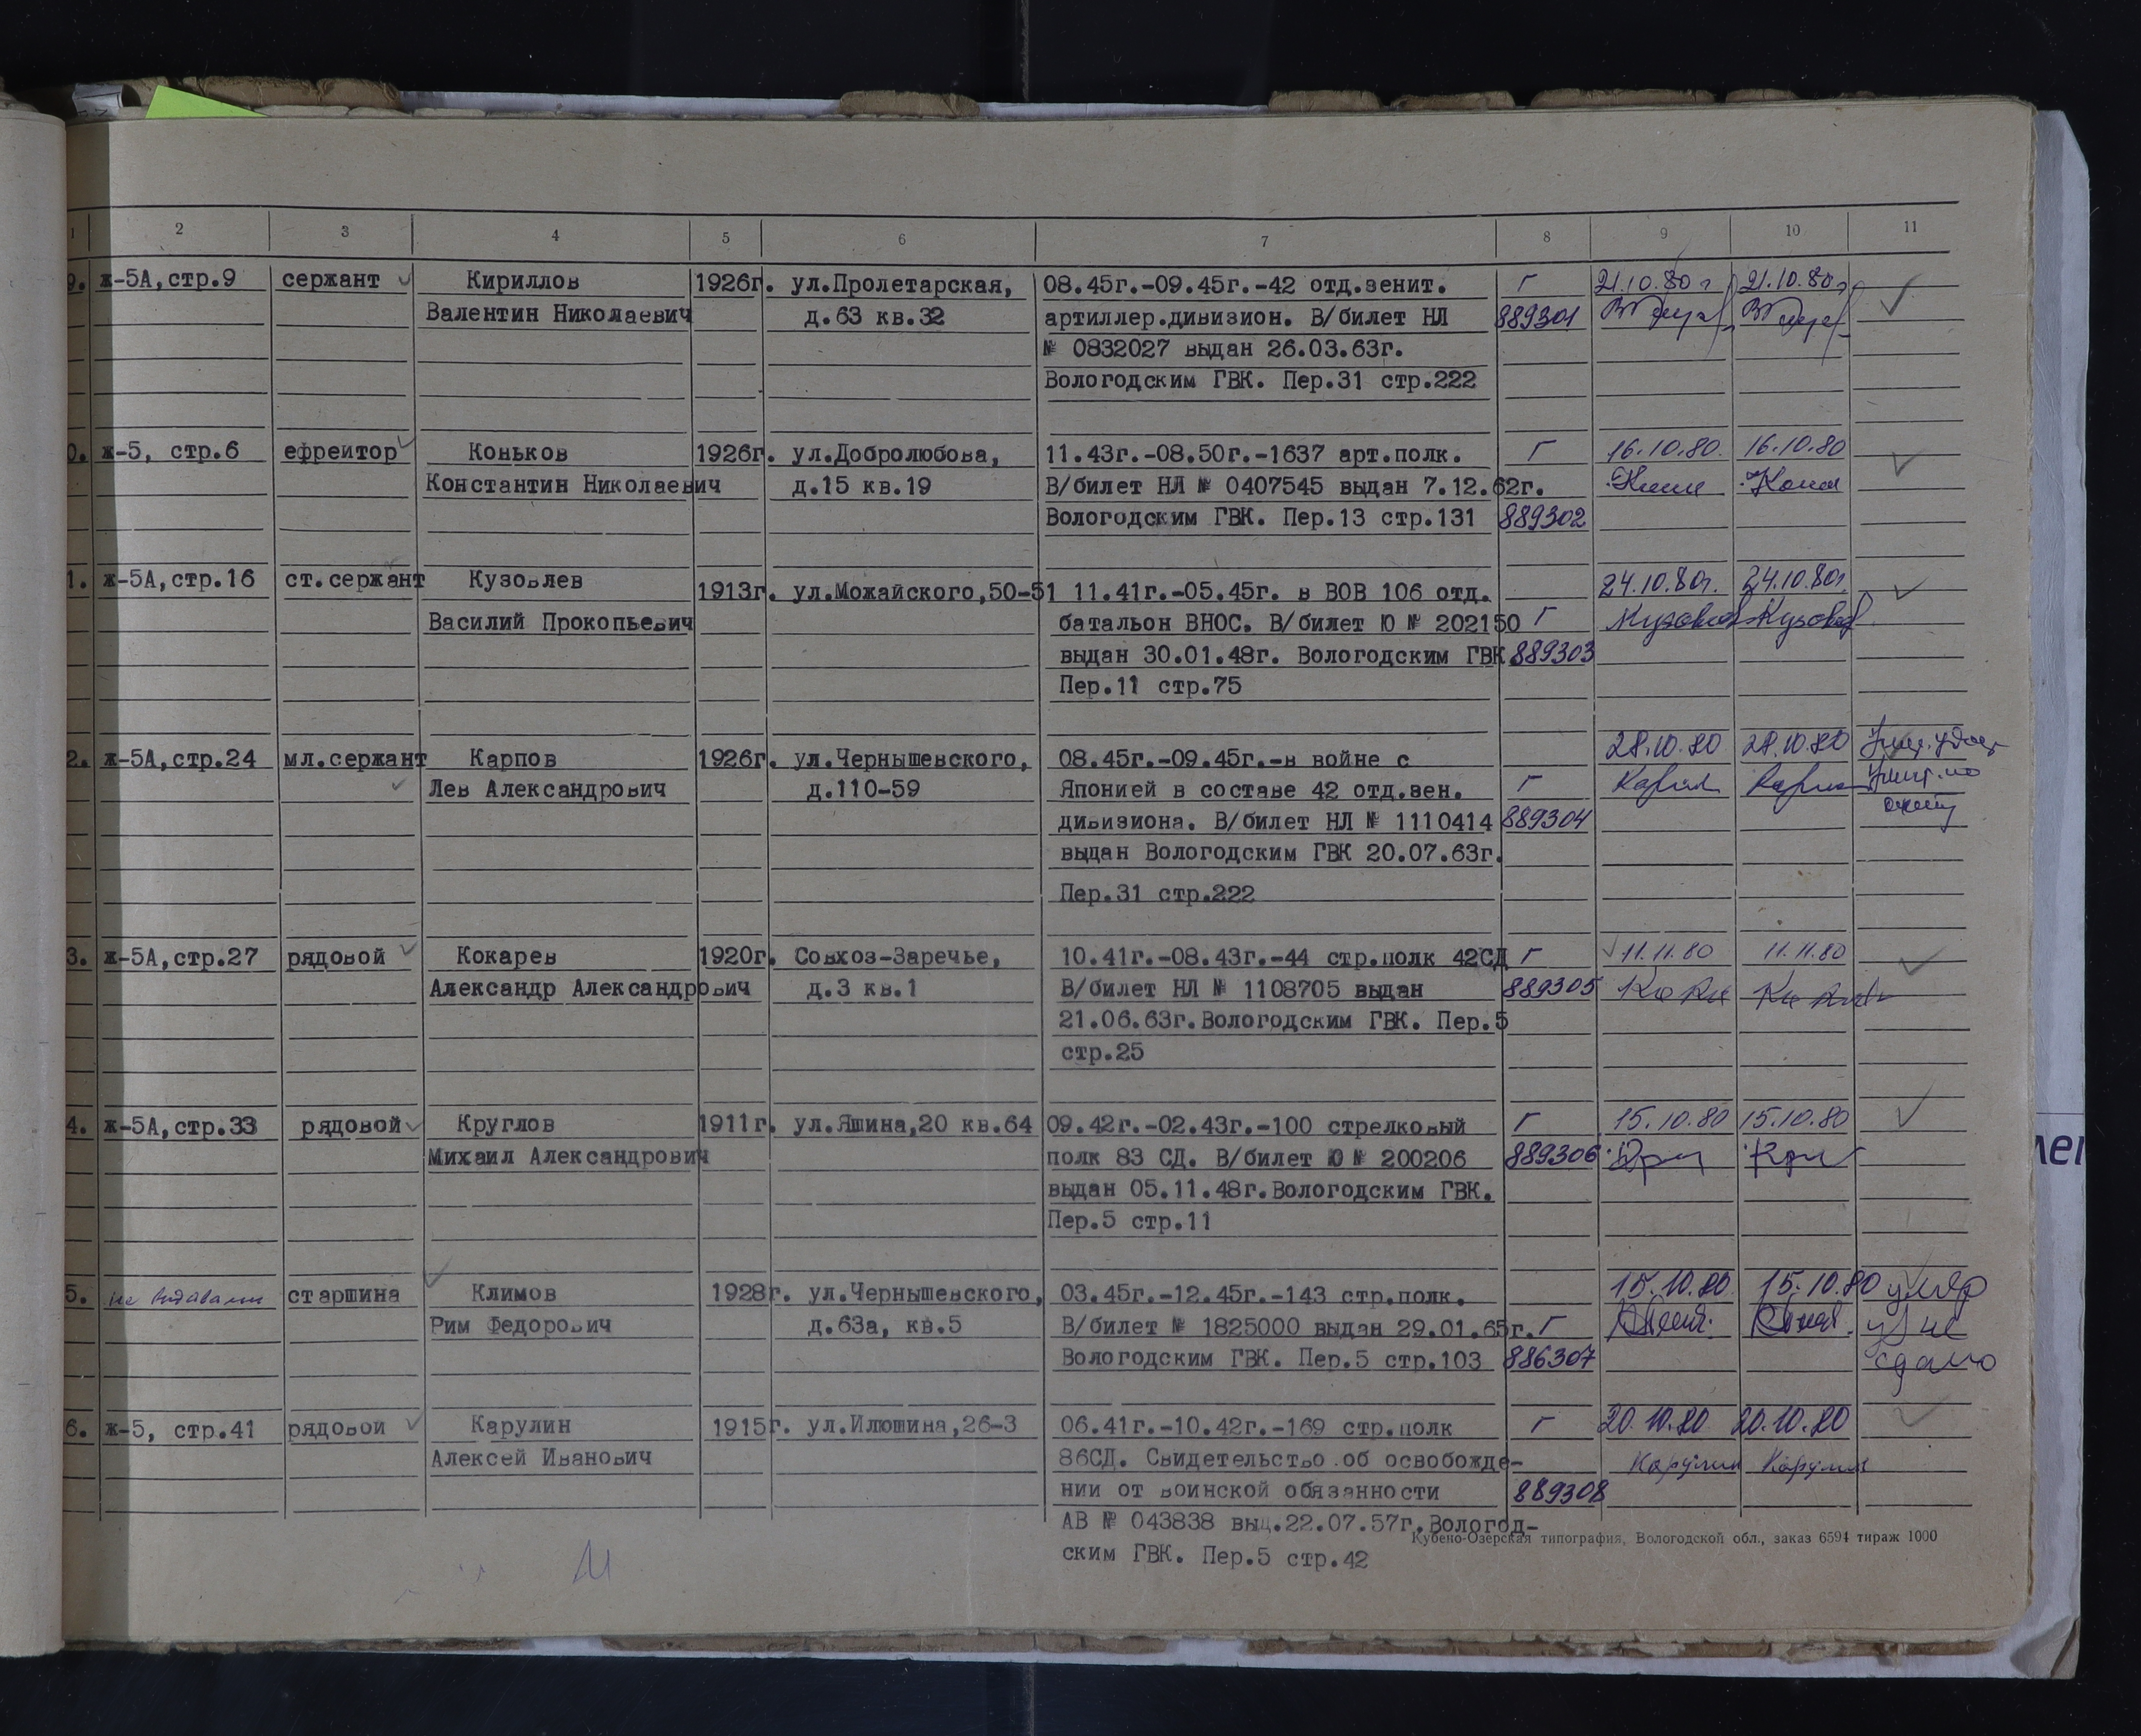 1 2 3 4 5 6 7 8 9 10 11
9. ж-5А,стр.9 сержант Кириллов 1926г. ул.Пролетарская, 08.45г.-09.45г.-42 отд.зенит. Г 21.10.80г 21.10.80г
Валентин Николаевич д.63 кв.32 артиллер.дивизион. В/билет НЛ 889301
№ 0832027 выдан 26.03.63г.
Вологодским ГВК. Пер.31 стр.222
0. ж-5, стр.6 ефрейтор Коньков 1926г. ул.Добролюбова, 11.43г.-08.50г.-1637 арт.полк. Г 16.10.80. 16.10.80
Константин Николаевич д.15 кв.19 В/билет НЛ № 0407545 выдан 7.12.62г.
Вологодским ГВК. Пер.13 стр.131 889302
1. ж-5А,стр.16 ст.сержант Кузовлев 1913г. ул.Можайского,50-51 11.41г.-05.45г. в ВОВ 106 отд. 24.10.80г. 24.10.80г
Василий Прокопьевич батальон ВНОС. В/билет Ю № 202150 Г
выдан 30.01.48г. Вологодским ГВК 889303
Пер.11 стр.75
2. ж-5А,стр.24 мл.сержант Карпов 1926г. ул.Чернышевского, 08.45г.-09.45г.-в войне с 28.10.80 28.10.80
Лев Александрович д.110-59 Японией в составе 42 отд.зен. Г
дивизиона. В/билет НЛ № 1110414 889304
выдан Вологодским ГВК 20.07.63г.
Пер.31 стр.222
3. ж-5А,стр.27 рядовой Кокарев 1920г. Совхоз-Заречье, 10.41г.-08.43г.-44 стр.полк 42СД Г 11.11.80 11.11.80
Александр Александрович д.3 кв.1 В/билет НЛ № 1108705 выдан 889305
21.06.63г.Вологодским ГВК. Пер.5
стр.25
4. ж-5А,стр.33 рядовой Круглов 1911г. ул.Яшина,20 кв.64 09.42г.-02.43г.-100 стрелковый Г 15.10.80 15.10.80
Михаил Александрович полк 83 СД. В/билет Ю № 200206 889306
выдан 05.11.48г.Вологодским ГВК.
Пер.5 стр.11
5. старшина Климов 1928г. ул.Чернышевского, 03.45г.-12.45г.-143 стр.полк. 15.10.80 15.10.80 умер
Рим Федорович д.63а, кв.5 В/билет № 1825000 выдан 29.01.65г. Г уд не
Вологодским ГВК. Пер.5 стр.103 886307 сдано
6. ж-5, стр.41 рядовой Карулин 1915г. ул.Илюшина,26-3 06.41г.-10.42г.-169 стр.полк Г 20.10.80 20.10.80
Алексей Иванович 86СД. Свидетельство об освобожде- Карулин Карулин
нии от воинской обязанности 889308
АВ № 043838 выд.22.07.57г.Вологод-
Кубено-Озерская типография, Вологодской обл., заказ 6594 тираж 1000
ским ГВК. Пер.5 стр.42